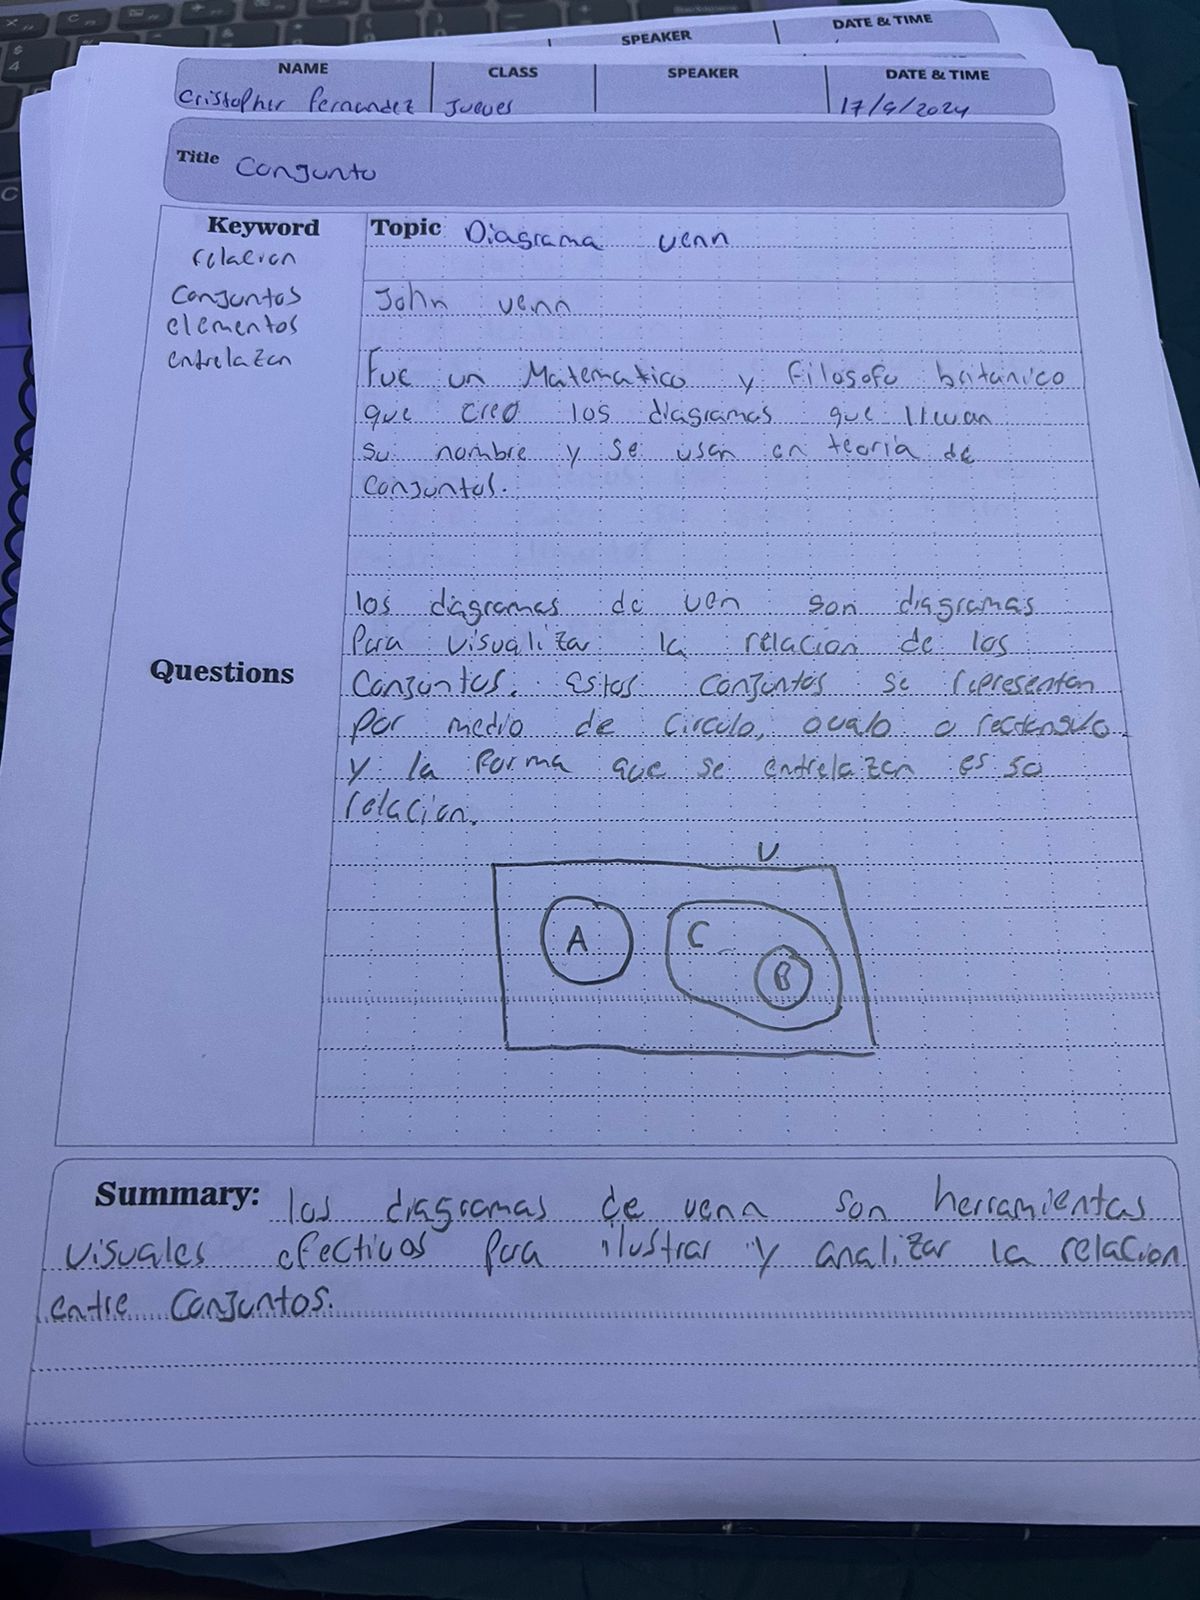 SPEAKER
DATE & TIME
NAME
CLASS
SPEAKER
DATE & TIME
Cristopher Fernandez
Jueves
17/9/2024
Title Conjunto
Keyword
relacion
Conjuntos
elementos
entrelazan
Topic Diagrama venn
John venn
Fue un Matematico y filosofo britanico
que creo los diagramas que llevan
su nombre y se usan en teoria de
Conjuntos.
los diagramas de ven son diagramas
Para visualizar la relacion de los
Conjuntos. Estos conjuntos se representan
por medio de circulo, ovalo o rectangulo
y la forma que se entrelazan es su
relacion.
Questions
U
A
C
B
Summary: los diagramas de venn son herramientas
visuales efectivos para ilustrar y analizar la relacion
entre Conjuntos.